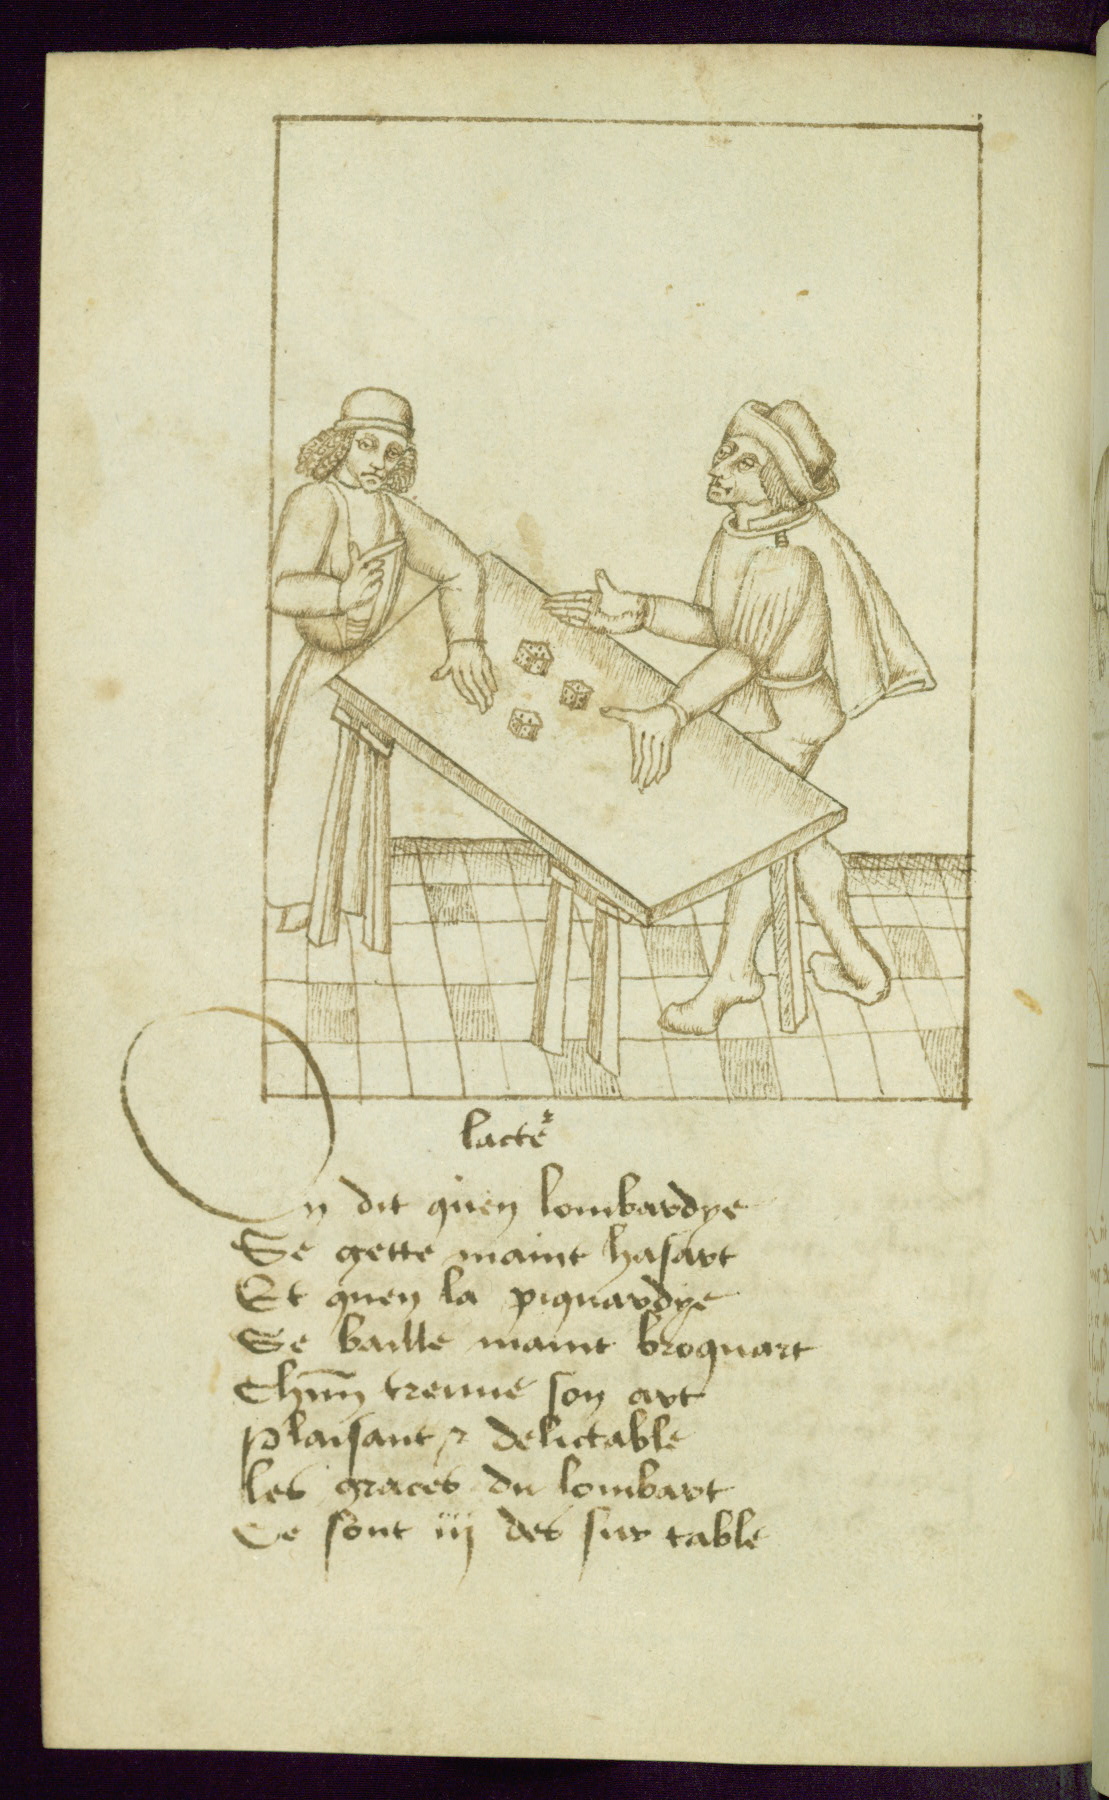 lacteᷣ
On dit quen lombardye
Se gette maint hasart
Et quen la piquardye
Se baille maint broquart
Chūn treuue son art
Plaisant ⁊ delictable
les graces du lombart
Ce sont iij des sur table